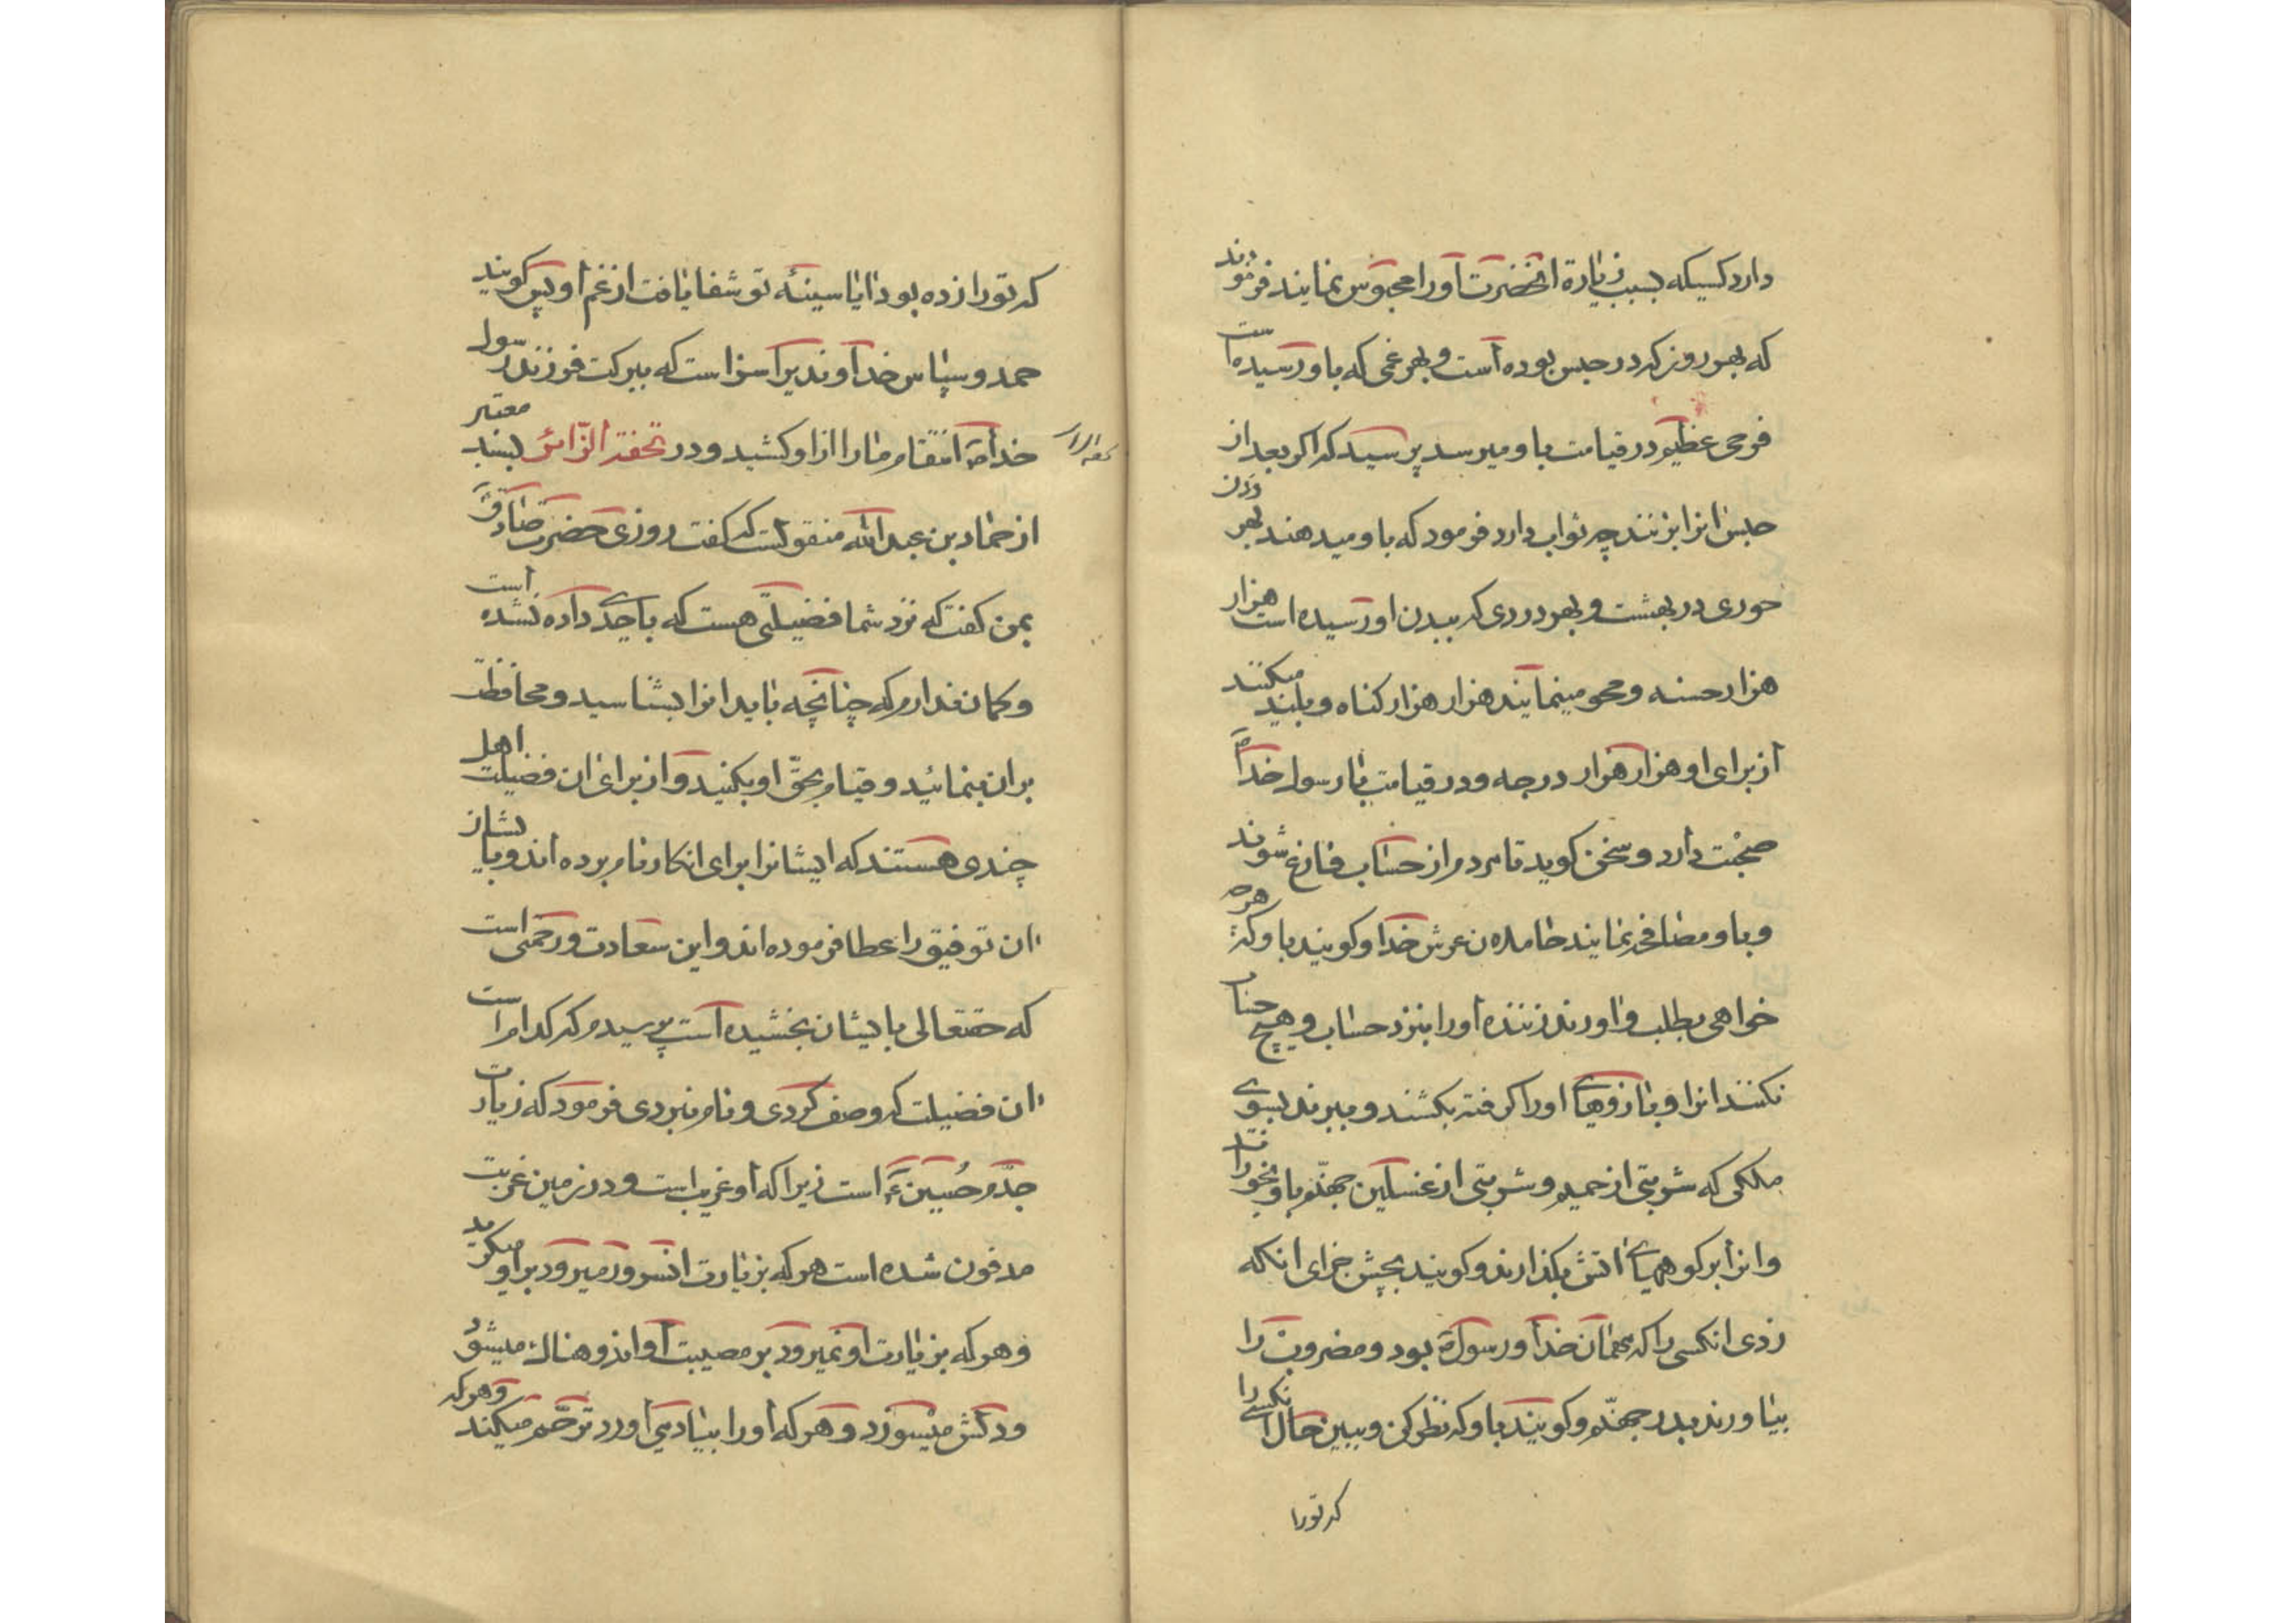 دارد کسیکه بسبب زیارة انحضرت اورا محبوس نمایند فرمودند
که بهر روز که در حبس بوده است و بهر غمی که باو رسیده است
فرحی عظیم در قیامت باو میرسد پرسید که اکر بعد از
حبس انرا بزنند چه ثواب دارد فرمود که باو میدهند بهر زدن
حوری در بهشت و بهر دردی که ببدن او رسیده است هزار
هزار حسنه و محو مینمایند هزار هزار کناه و بلند میکنند
از برای او هزار هزار درجه و در قیامت با رسول خدا ص
صحبت دارد و سخن کوید تا مردم از حساب فارغ شوند
و باو مصافحه نمایند حاملان عرش خدا و کویند باو که هرچه
خواهی بطلب و اورند زننده اورا بنزد حساب و هیچ حساب
نکنند انرا و بازوهای اورا کرفته بکشند و ببرند بسوی
ملکی که شربتی از حمیم و شربتی از غسلین جهنم باو بخوراند
و انرا بر کوههای اتش بکذارند و کویند بچش جزای انکه
زدی انکسی را که مهمان خدا و رسول ص بود و مضروب را
بیاورند بدر جهنم و کویند باو که نظر کن و ببین حال انکسی را
که تورا
که تورا زده بود ایا سینهٔ تو شفا یافت از غم او پس کویند
حمد و سپاس خداوندیرا سزاست که ببرکت فرزند رسول
خدا ص انتقام مارا از او کشید و در تحفة الزائر بسند معتبر
از حماد بن عبدالله منقولست که کفت روزی حضرت صادق ع
بمن کفت که نزد شما فضیلتی هست که باحدی داده نشده است
و کمان ندارم که چنانچه باید انرا بشناسید و محافظت
بران بنمائید و قیام بحق او بکنید و از برای ان فضیلت اهل
چندی هستند که ایشانرا برای انکار نام برده اند و بایشان
ان توفیق را عطا فرموده اند و این سعادت و رحمتی است
که حقتعالی بایشان بخشیده است پرسیدم که کدام است
ان فضیلت که وصف کردی و نام نبردی فرمود که زیارت
جدم حسین ع است زیرا که او غریب است و در زمین غربت
مدفون شده است هر که بزیارت انسرور میرود براو میکرید
و هر که بزیارت او نمیرود بر مصیبت او اندوهناک میشود
و دلش میسوزد و هر که اورا بیاد می اورد ترحم میکند و هر که